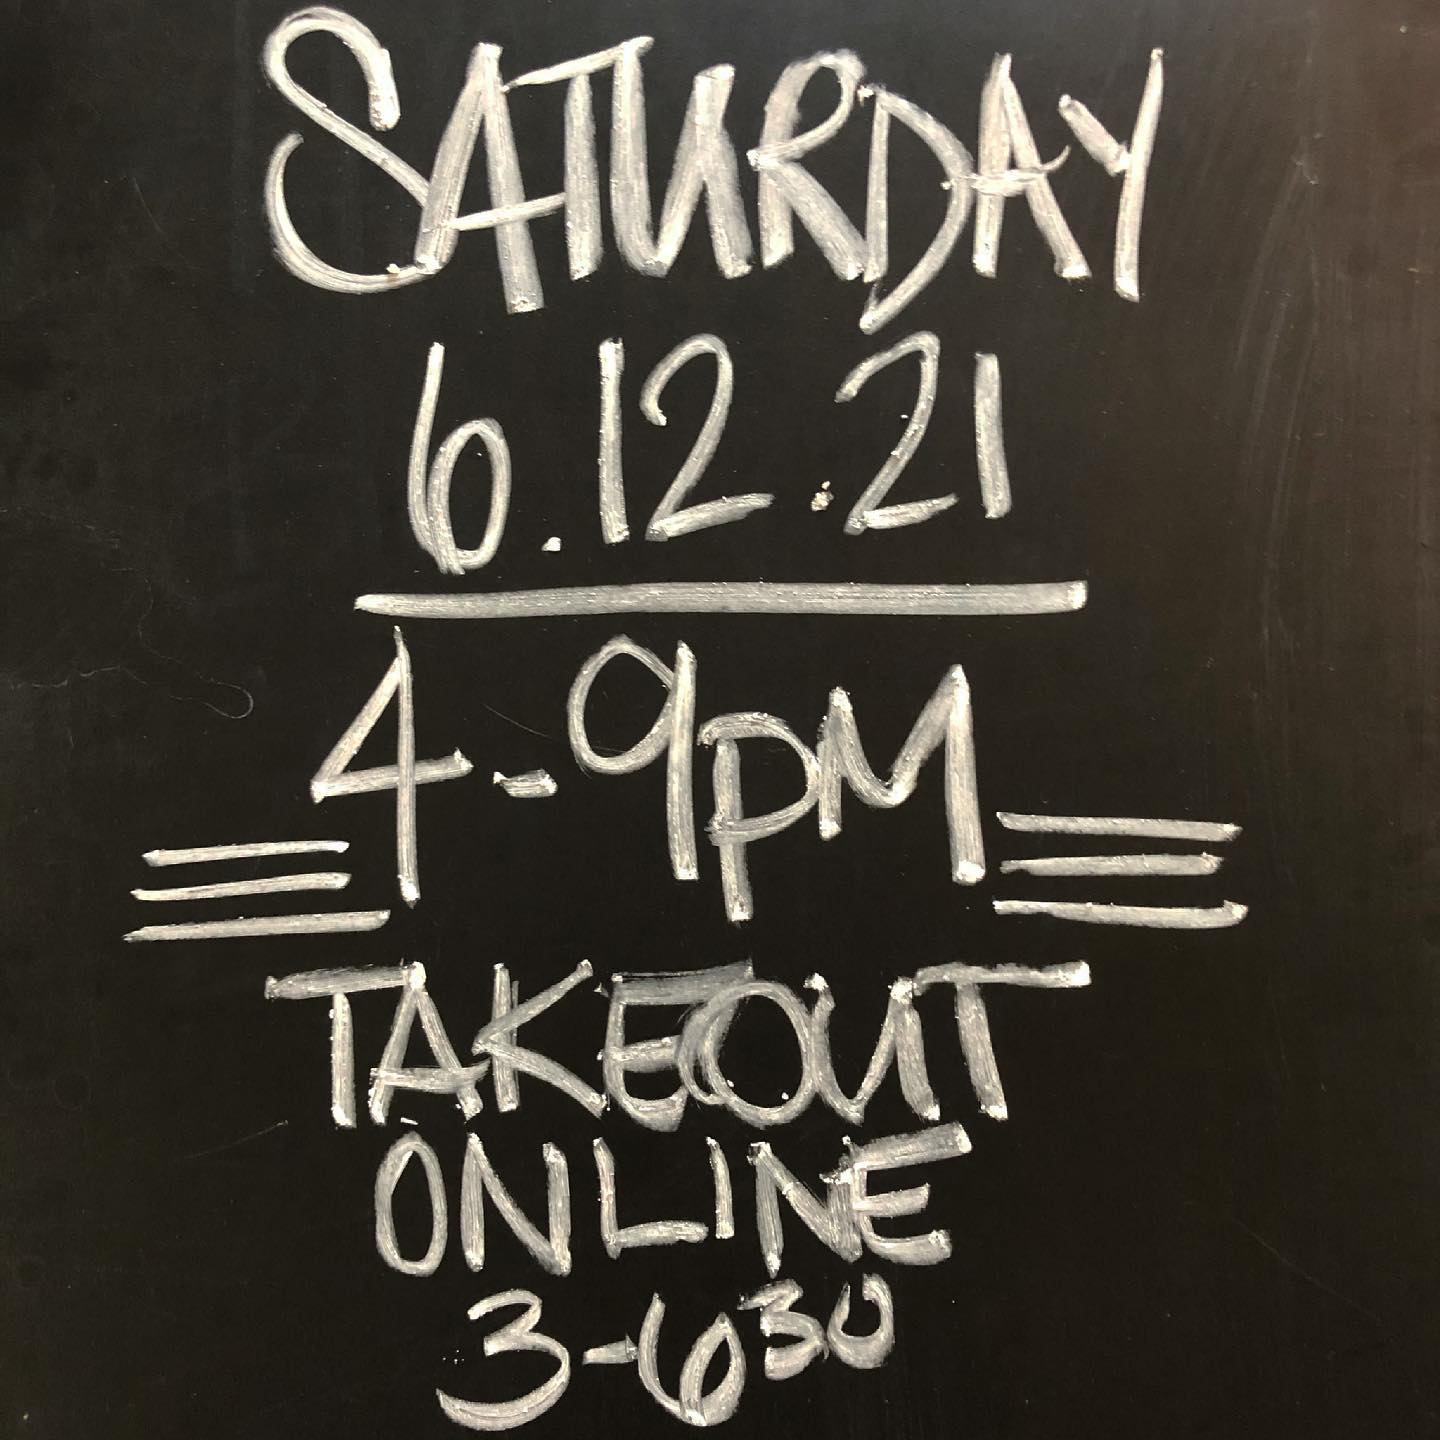 SATURDAY
6.12.21
4-9PM
TAKEOUT
ONLINE
3-6³⁰